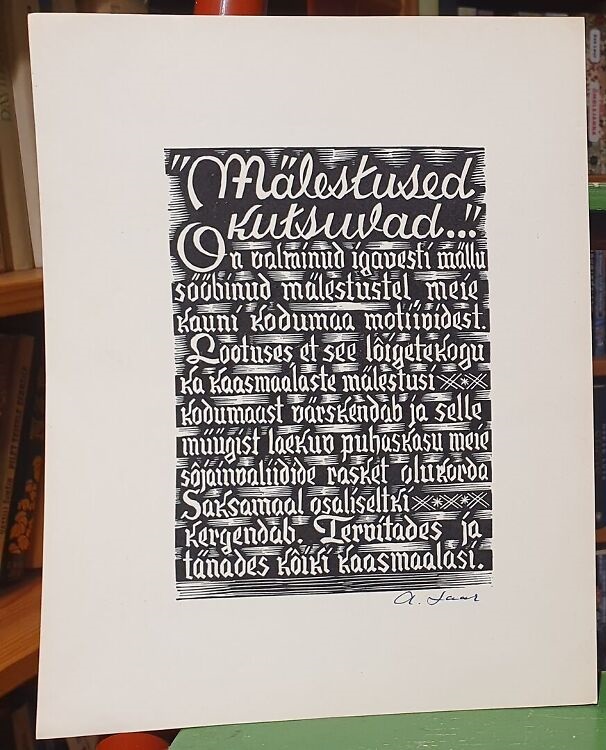 "Mälestused
kutsuvad..."
On valminud igavesti mällu
sööbinud mälestustel meie
kauni kodumaa motiividest.
Lootuses et see lõigetekogu
ka kaasmaalaste mälestusi
kodumaast värskendab ja selle
müügist laekuv puhaskasu meie
sõjainvaliidide rasket olukorda
Saksamaal osaliseltki
kergendab. Tervitades ja
tänades kõiki kaasmaalasi.